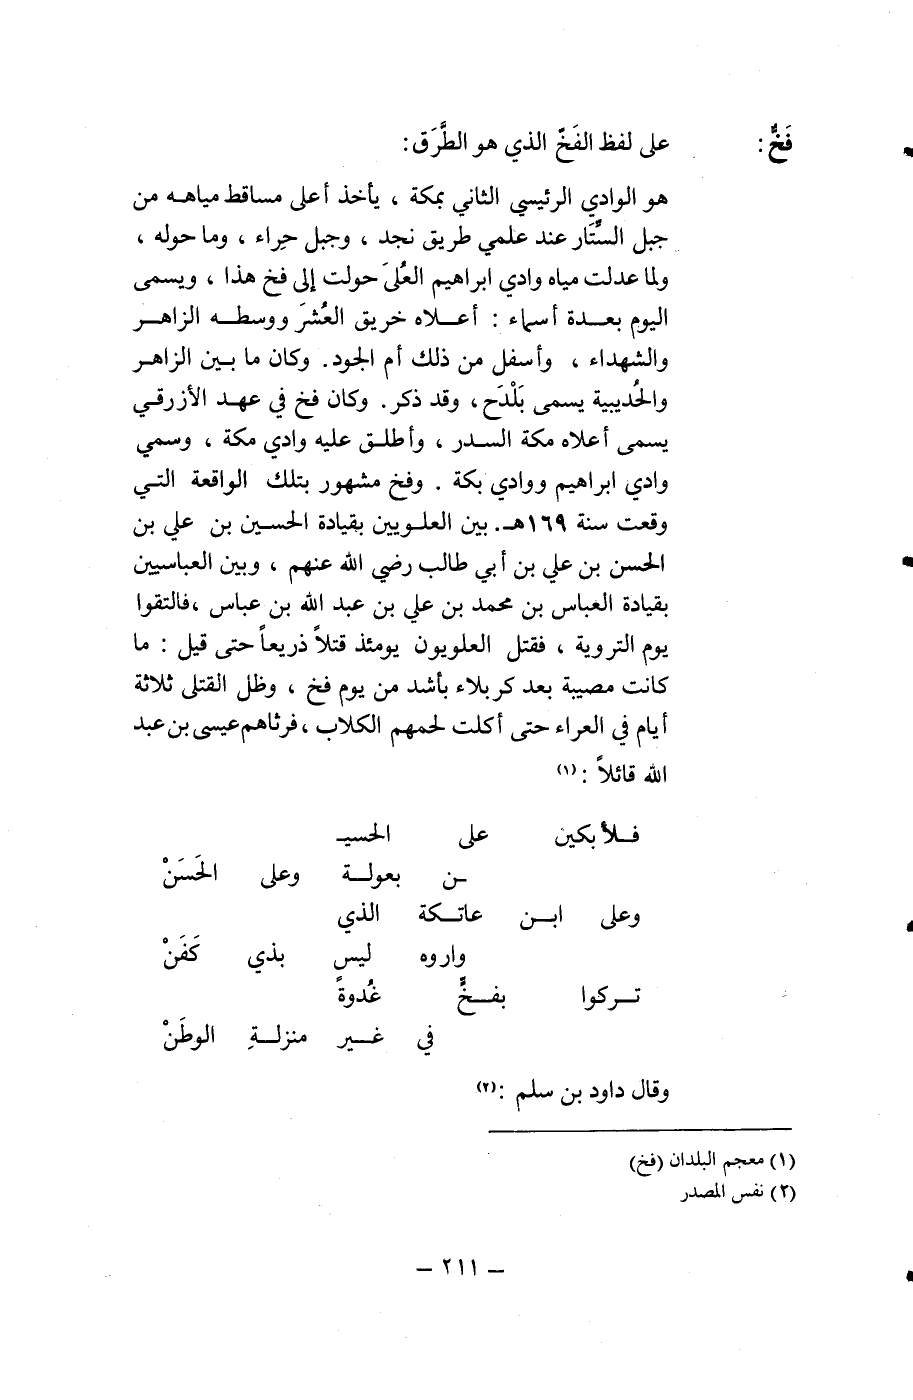 فَخٌّ : على لفظ الفَخّ الذي هو الطَّرَق :
هو الوادي الرئيسي الثاني بمكة ، يأخذ أعلى مساقط مياهه من
جبل السِّتَار عند علمي طريق نجد ، وجبل حِراء ، وما حوله ،
ولما عدلت مياه وادي ابراهيم العُلىَ حولت إلى فخ هذا ، ويسمى
اليوم بعدة أسماء : أعلاه خريق العُشَر ووسطه الزاهر
والشهداء ، وأسفل من ذلك أم الجود . وكان ما بين الزاهر
والحُديبية يسمى بَلْدَح ، وقد ذكر . وكان فخ في عهد الأزرقي
يسمى أعلاه مكة السدر ، وأطلق عليه وادي مكة ، وسمي
وادي ابراهيم ووادي بكة . وفخ مشهور بتلك الواقعة التي
وقعت سنة ١٦٩هـ. بين العلويين بقيادة الحسين بن علي بن
الحسن بن علي بن أبي طالب رضي الله عنهم ، وبين العباسيين
بقيادة العباس بن محمد بن علي بن عبد الله بن عباس ،فالتقوا
يوم التروية ، فقتل العلويون يومئذ قتلاً ذريعاً حتى قيل : ما
كانت مصيبة بعد كربلاء بأشد من يوم فخ ، وظل القتلى ثلاثة
أيام في العراء حتى أكلت لحمهم الكلاب ، فرثاهم عيسى بن عبد
الله قائلاً : (١)
فلأبكين على الحسيـ
ـن بعولة وعلى الحَسَنْ
وعلى ابن عاتكة الذي
واروه ليس بذي كَفَنْ
تركوا بفخٍّ غُدوةً
في غير منزلةِ الوطَنْ
وقال داود بن سلم :(٢)
(١) معجم البلدان (فخ)
(٢) نفس المصدر
– ٢١١ –